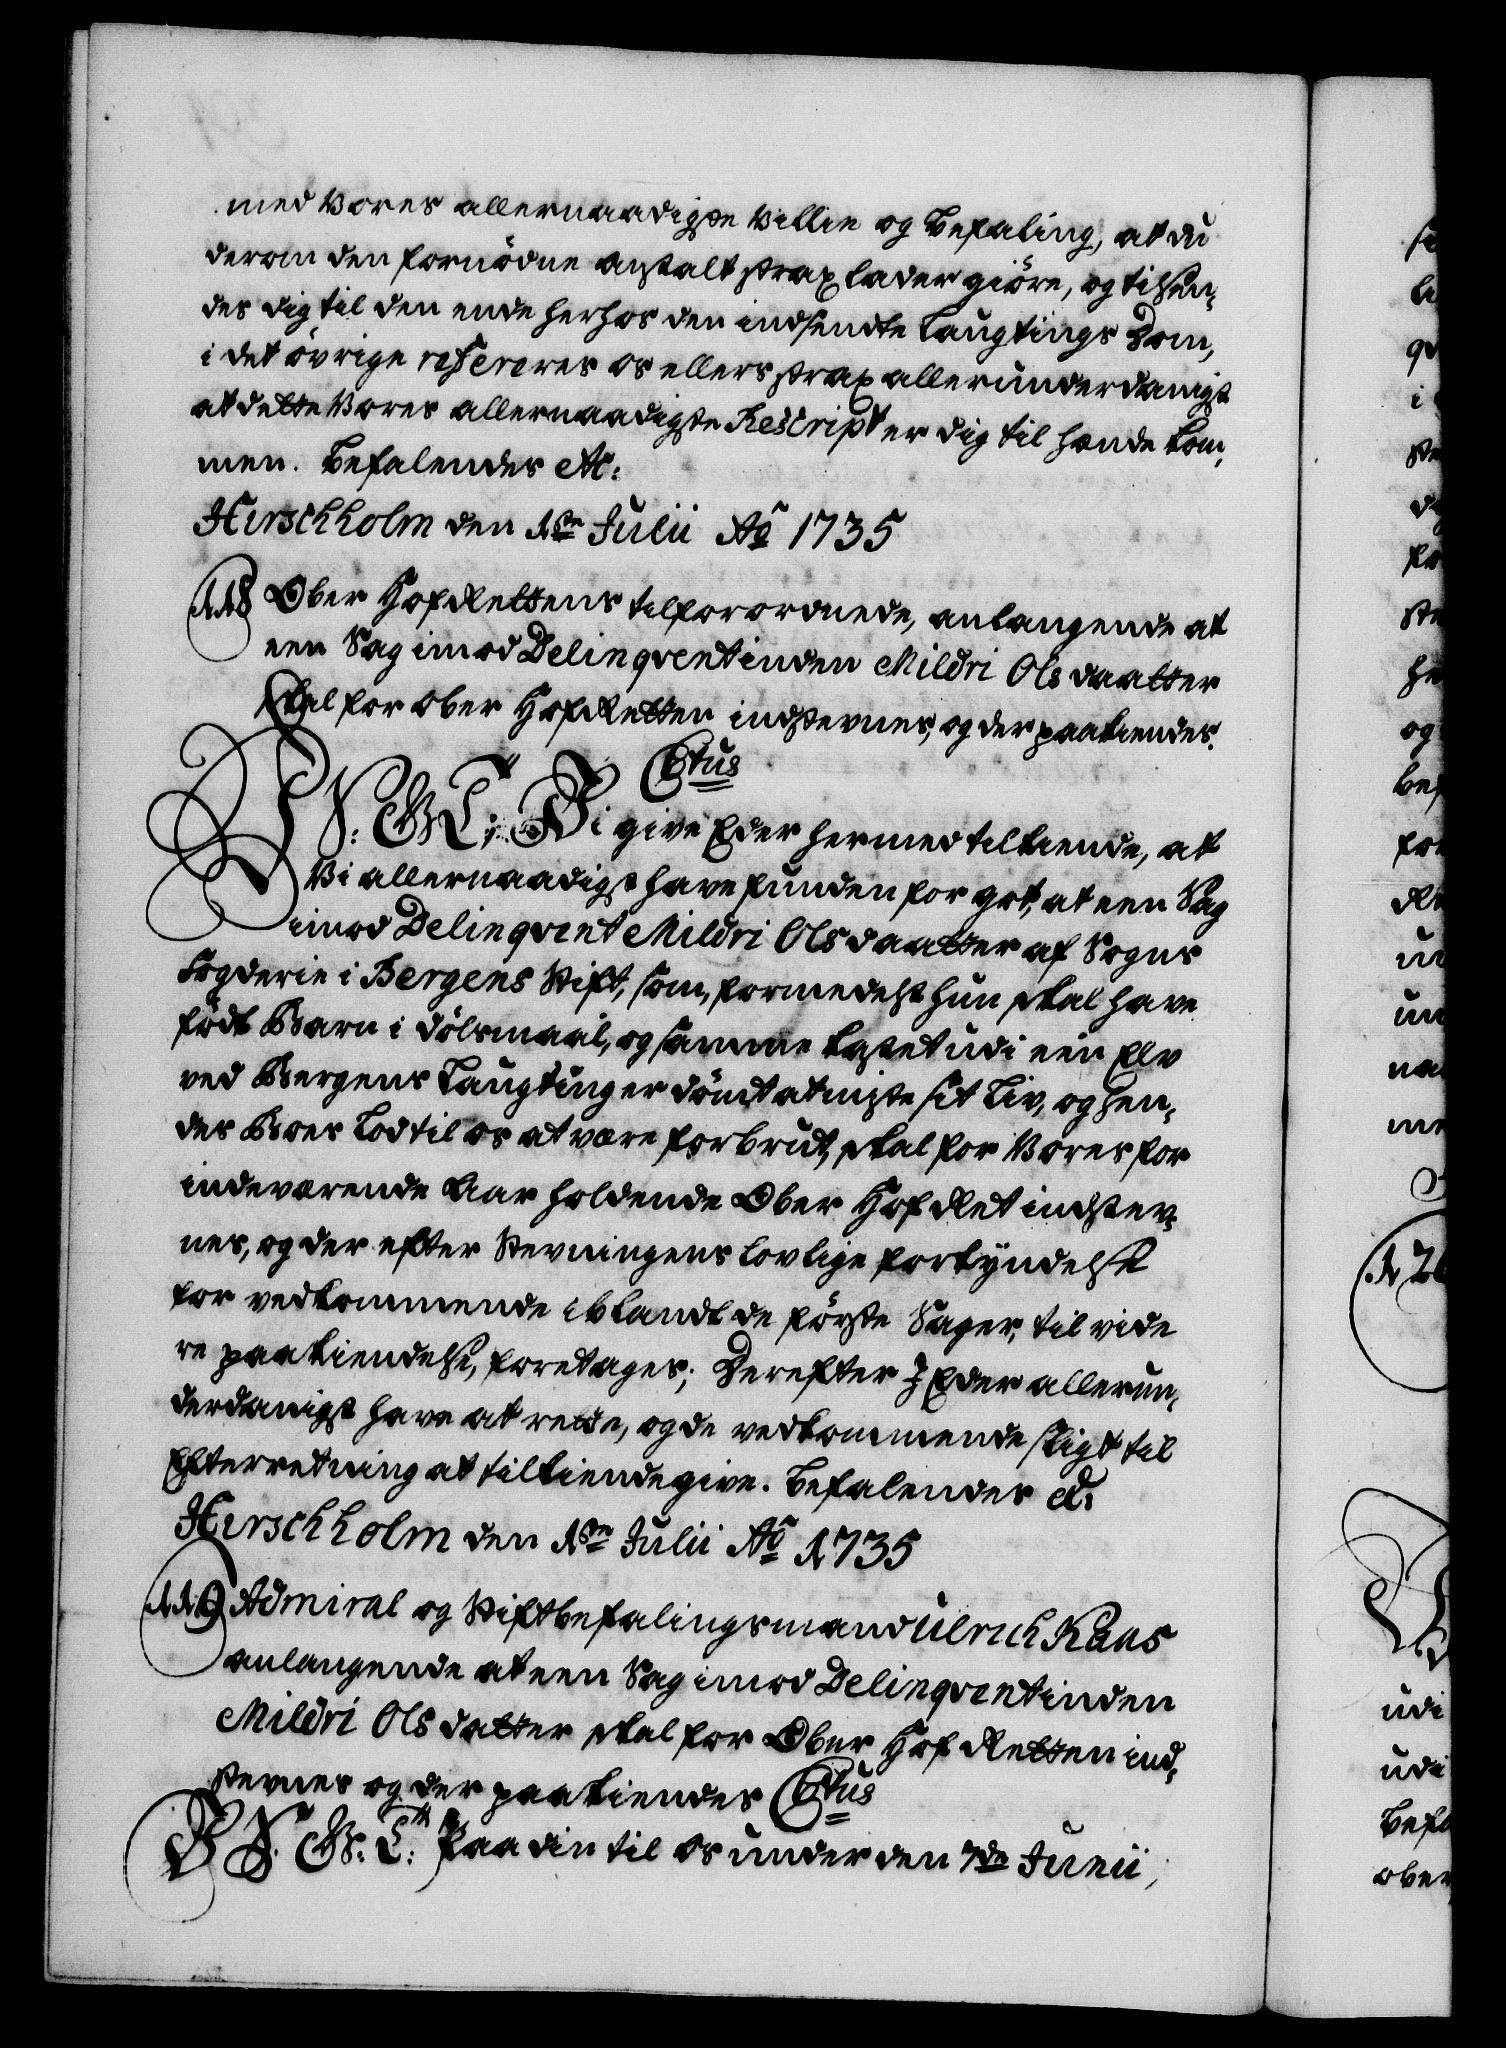 med Vores allernaadigste Villie og Befaling, at du
derom den fornödne anstalt strax lader giöre, og tilsen-
des dig til den ende herhos den indsendte Laugtings Dom,
i det övrige refereres os ellers strax allerunderdanigst
at dette Vores allernaadigste Rescript er dig til hænde kom-
men. Befalendes etc:
Hirschholm den 1ste Julii Ao 1735
118 Ober Hof Rettens tilforordnede, anlangende at
een Sag imod Delinqventinden Mildri Olsdaatter
skal for Ober Hof Retten indstevnes, og der paakiendes.
Ctus
V. G. T. Vi give Eder hermed tilkiende, at
Vi allernaadigst have funden for got, at een Sag
imod Delinqvent Mildri Olsdaatter af Sogns
Fogderie i Bergens Stift, som, formedelst hun skal have
födt Barn i dölsmaal, og samme kastet udi een Elv
ved Bergens Laugting er dömt at miste sit Liv, og hen-
des Boes Lod til os at være forbrut, skal for Vores for
indeværende Aar holdende Ober Hof Ret indstev-
nes, og der efter Stevningens lovlige forkyndelse
for vedkommende iblandt de förste Sager, til vide
re paakiendelse, foretages; Derefter I Eder allerun-
derdanigst have at rette, og de vedkommende sligt til
Efterretning at tilkiendegive. Befalendes etc.
Hirschholm den 1ste Julii Ao 1735
119 Admiral og Stiftbefalingsmand Ulrich Kaas
anlangende at een Sag imod Delinqventinden
Mildri Olsdatter skal for Ober Hof Retten ind-
stevnes og der paakiendes Ctus
V. G. T. Paa din til os under den 7de Junii,